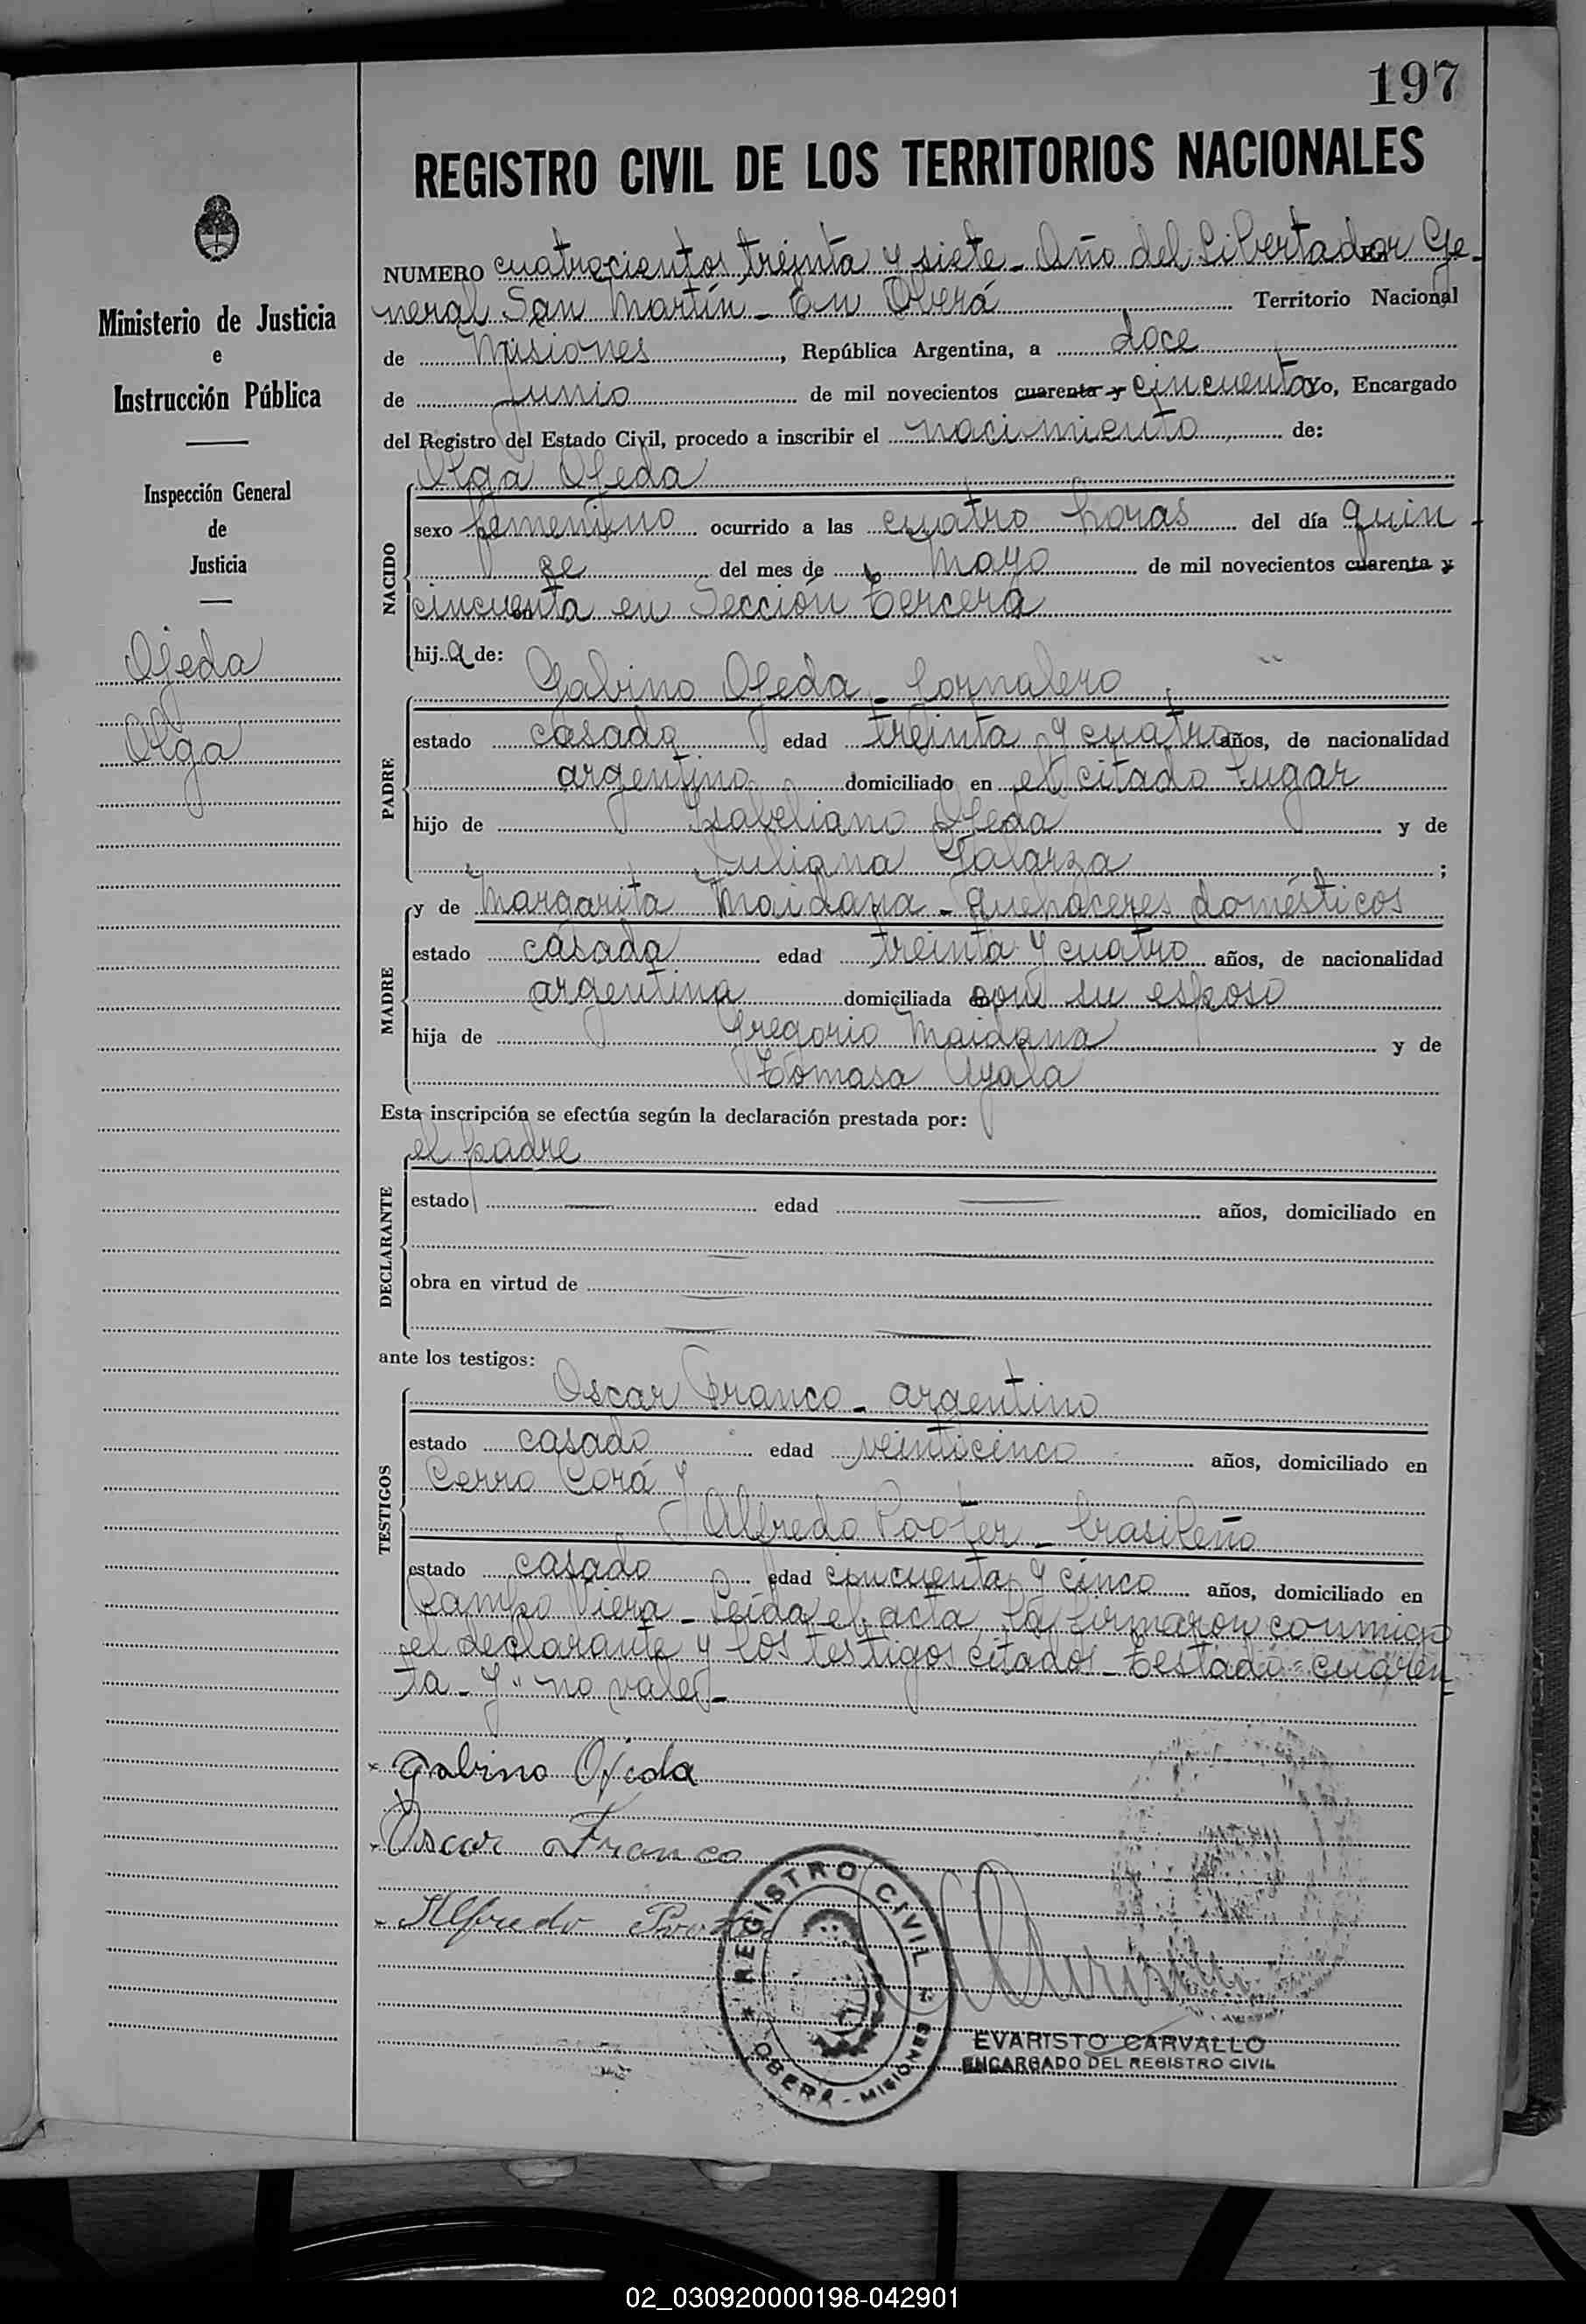 197
REGISTRO CIVIL DE LOS TERRITORIOS NACIONALES
NUMERO cuatrocientos treinta y siete - Año del Libertador Ge-
neral San Martín - En Oberá Territorio Nacional
de Misiones, República Argentina, a doce
de Junio de mil novecientos cuarenta y cincuenta Yo, Encargado
del Registro del Estado Civil, procedo a inscribir el nacimiento de:
Olga Ojeda
NACIDO
sexo femenino ocurrido a las cuatro horas del día quin-
ce del mes de mayo de mil novecientos cuarenta y
cincuenta en Sección Tercera
hija de:
Gabino Ojeda - Jornalero
PADRE
estado casado edad treinta y cuatro años, de nacionalidad
argentino domiciliado en el citado lugar
hijo de Isabeliano Ojeda y de
Juliana Galarza ;
y de Margarita Maidana - quehaceres domésticos
MADRE
estado casada edad treinta y cuatro años, de nacionalidad
argentina domiciliada con su esposo
hija de Gregorio Maidana y de
Tomasa Ayala
Esta inscripción se efectúa según la declaración prestada por:
el padre
DECLARANTE
estado edad años, domiciliado en
obra en virtud de
ante los testigos:
Oscar Franco - argentino
TESTIGOS
estado casado edad veinticinco años, domiciliado en
Cerro Corá y
Alfredo Pooter - brasileño
estado casado edad cincuenta y cinco años, domiciliado en
Campo Viera - Leída el acta la firmaron conmigo
el declarante y los testigos citados - Testado "cuaren-
ta - y" no vale -
Gabino Ojeda
Oscar Franco
Alfredo
REGISTRO CIVIL
OBERÁ - MISIONES
EVARISTO CARVALLO
ENCARGADO DEL REGISTRO CIVIL
Ministerio de Justicia
e
Instrucción Pública
Inspección General
de
Justicia
Ojeda
Olga
02_030920000198-042901